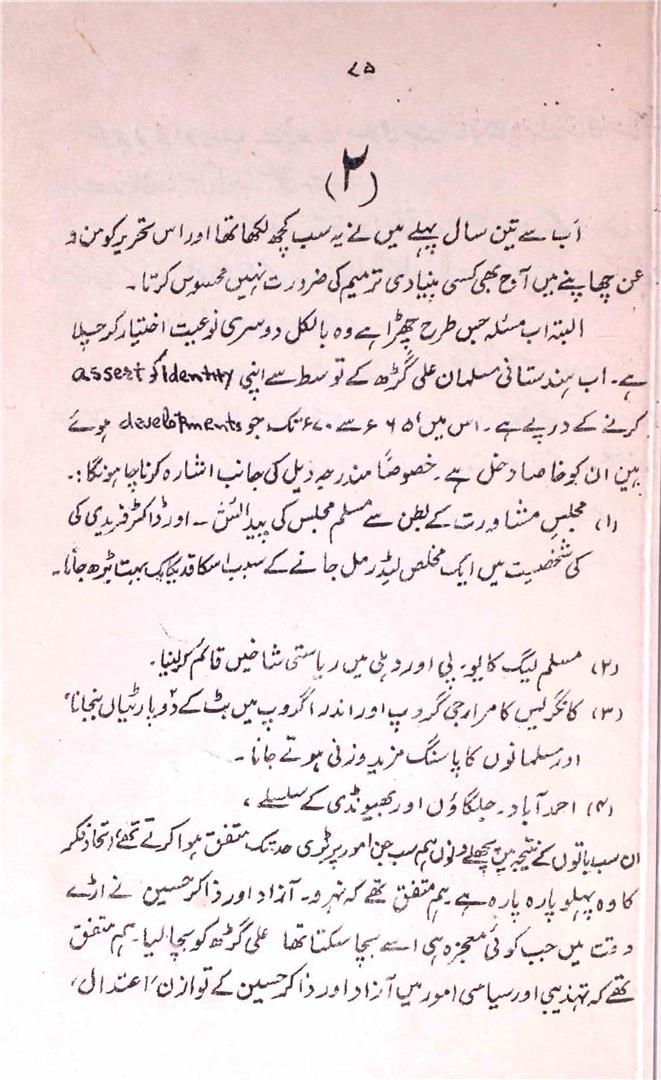 ۷۵
(۲)
اَب سے تین سال پہلے میں نے یہ سب کچھ لکھا تھا اور اس تحریر کو من و
عن چھاپنے میں آج بھی کسی بنیادی ترمیم کی ضرورت نہیں محسوس کرتا۔
البتہ اب مسئلہ جس طرح چھڑا ہے وہ بالکل دوسری نوعیت اختیار کر چلا
ہے۔ اب ہندستانی مسلمان علی گڑھ کے توسط سے اپنی Identity کو assert
کرنے کے درپے ہے۔ اس میں ۶۶۵ سے ۶۷۰ تک جو developments ہوئے
ہیں ان کو خاصا دخل ہے۔ خصوصاً مندرجہ ذیل کی جانب اشارہ کرنا چاہونگا :۔
(۱) مجلسِ مشاورت کے بطن سے مسلم مجلس کی پیدائش ۔ اور ڈاکٹر فریدی کی
کی شخصیت میں ایک مخلص لیڈر مل جانے کے سبب اسکا قد یکایک بہت بڑھ جانا۔
(۲) مسلم لیگ کا یو۔ پی اور دہلی میں ریاستی شاخیں قائم کرلینا۔
(۳) کانگریس کا مرارجی گروپ اور اندرا گروپ میں بٹ کے دو پارٹیاں بنجانا
اور مسلمانوں کا پاسنگ مزید وزنی ہوتے جانا۔
(۴) احمد آباد۔ جلگاؤں اور بھیونڈی کے سلسلے ،
ان سب باتوں کے نتیجہ میں پچھلے دنوں ہم سب جن امور پر بڑی حد تک متفق ہوا کرتے تھے، اتحاد فکر
کا وہ پہلو پارہ پارہ ہے۔ ہم متفق تھے کہ نہرو۔ آزاد اور ذاکر حسین نے اڑے
وقت میں جب کوئی معجزہ ہی اسے بچا سکتا تھا علی گڑھ کو بچا لیا۔ ہم متفق
تھے کہ تہذیبی اور سیاسی امور میں آزاد اور ذاکر حسین کے توازن، اعتدال،